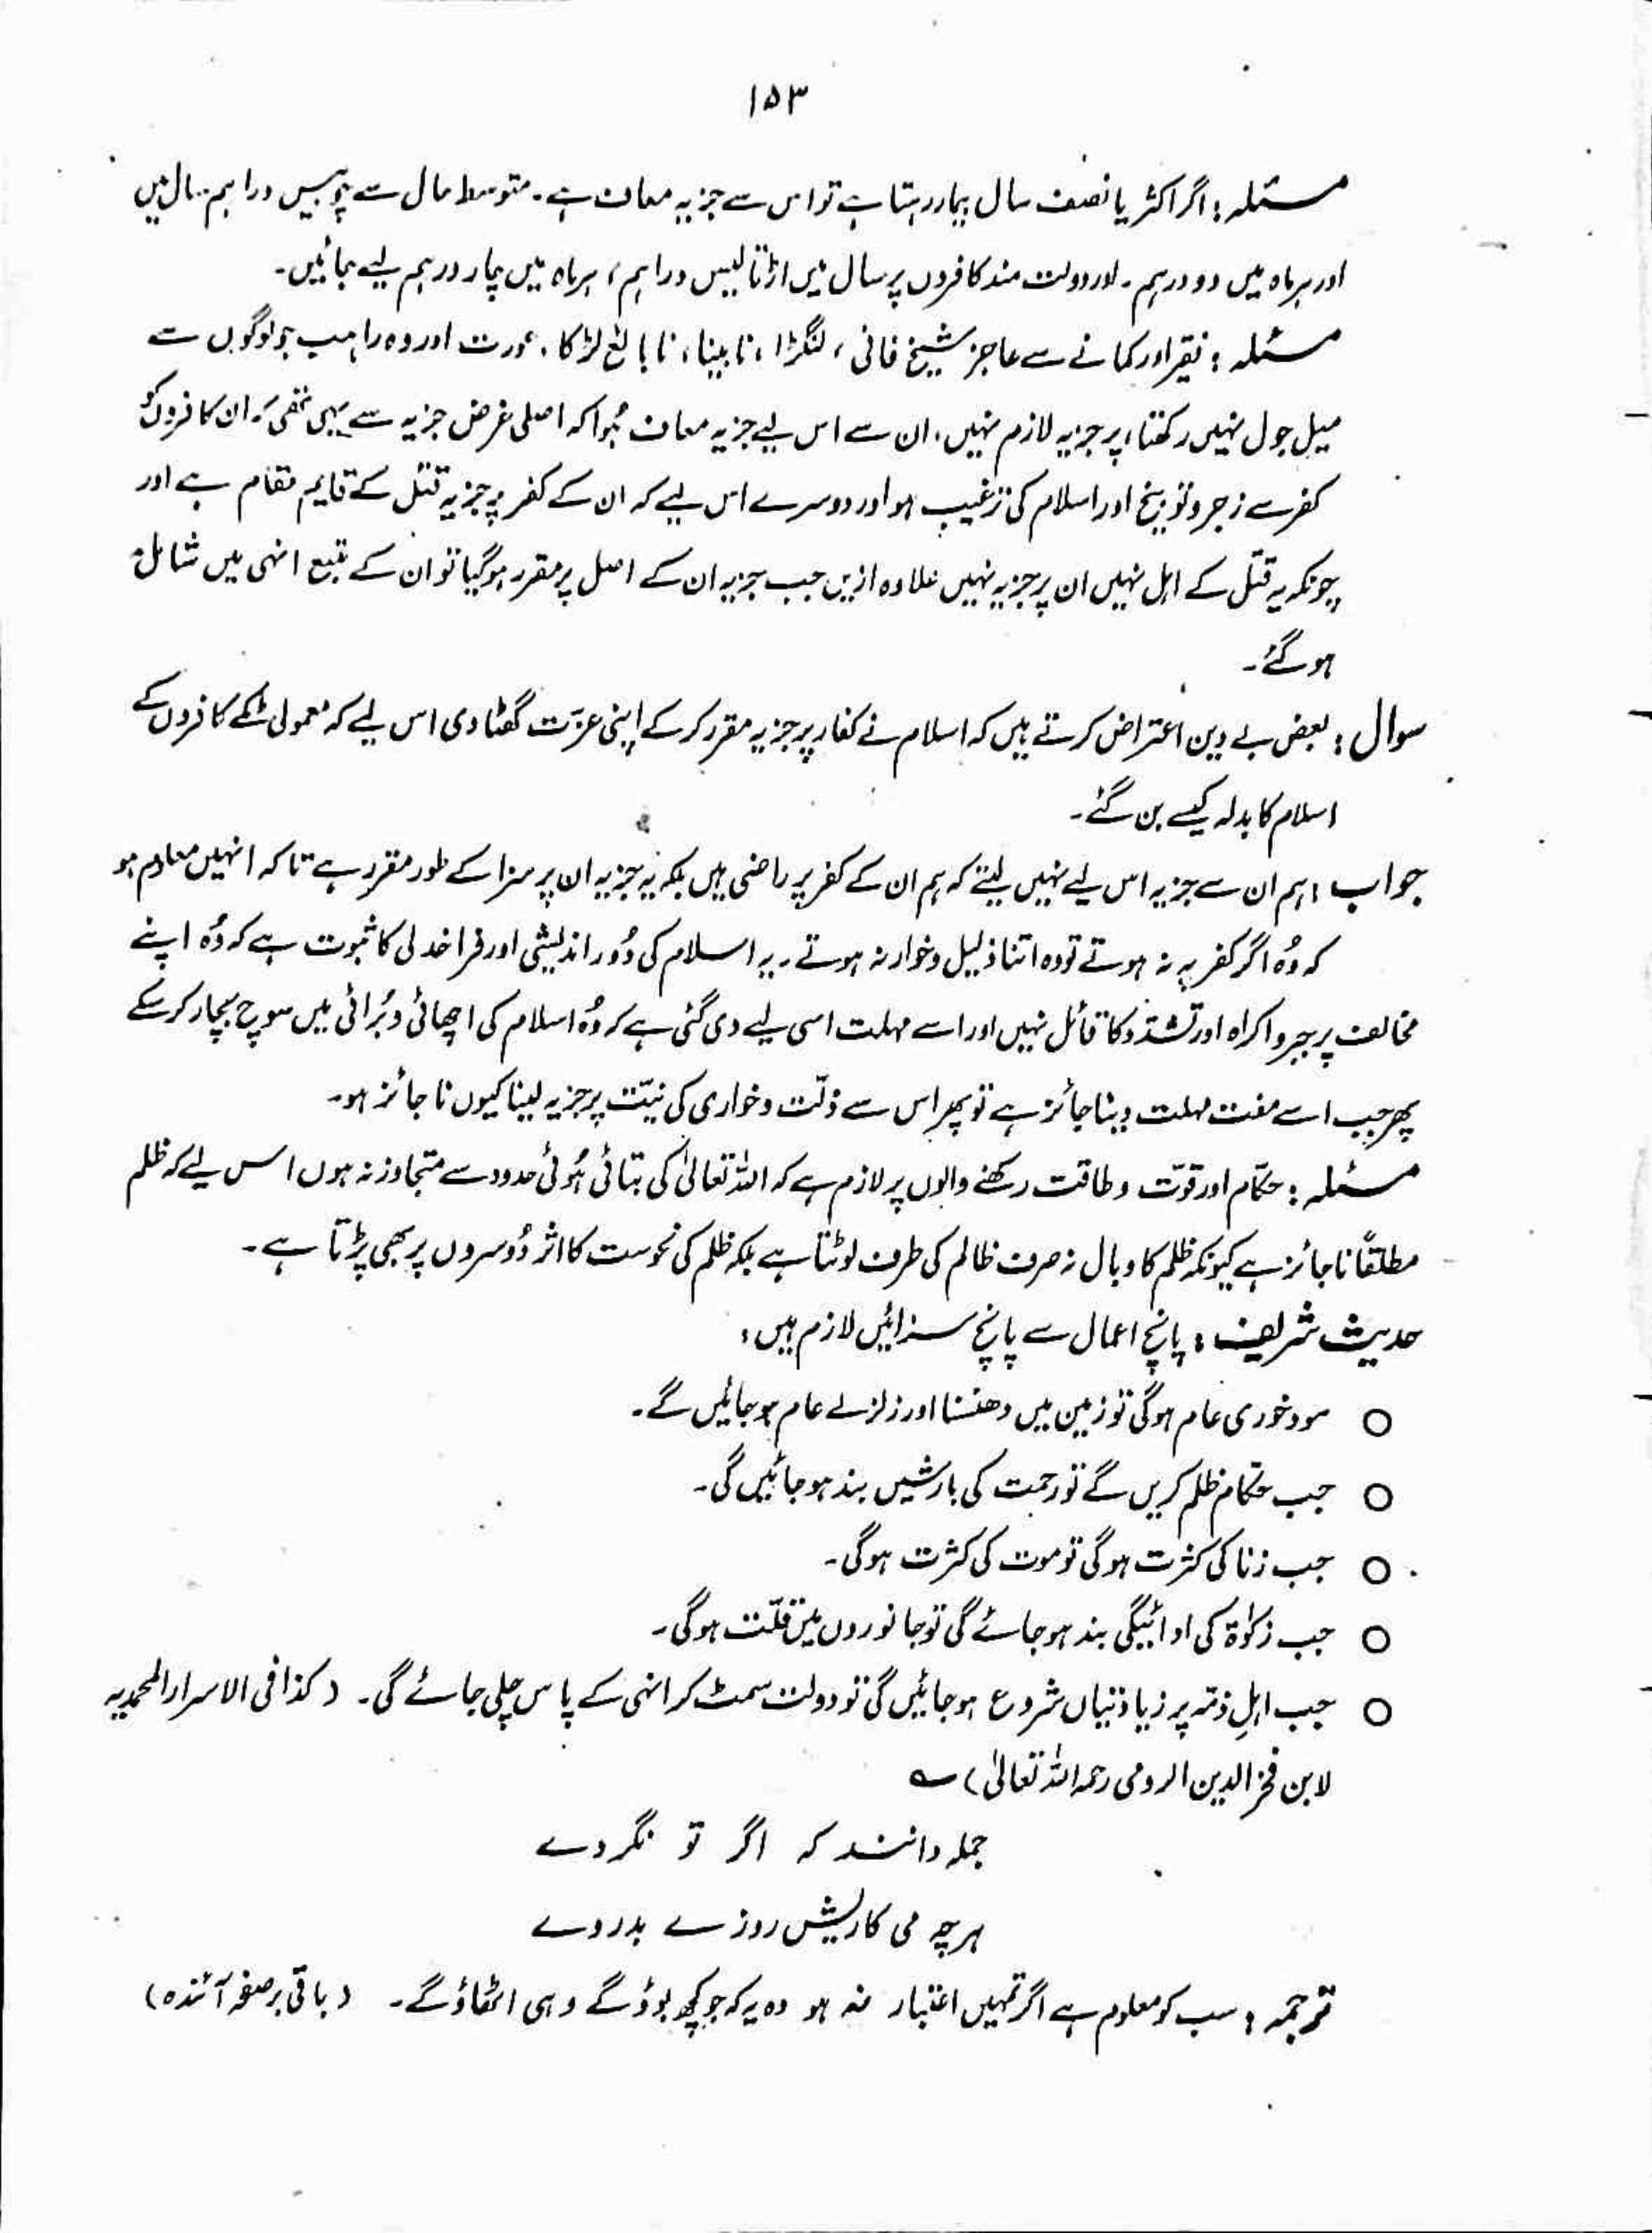 ۱۵۳
مسئلہ : اگر اکثر یا نصف سال بیمار رہتا ہے تو اس سے جزیہ معاف ہے۔ متوسط مال سے چوبیس دراہم سال میں
اور ہر ماہ میں دو درہم۔ اور دولت مند کافروں پر سال میں اڑتالیس دراہم ، ہر ماہ میں چار درہم لیے جائیں۔
مسئلہ : فقیر اور کمانے سے عاجز شیخ فانی ، لنگڑا ، نابینا ، نابالغ لڑکا ، عورت اور وہ راہب جو لوگوں سے
میل جول نہیں رکھتا ، پر جزیہ لازم نہیں ، ان سے اس لیے جزیہ معاف ہُوا کہ اصلی غرض جزیہ سے یہی تھی کہ ان کافروں کو
کفر سے زجر و توبیخ اور اسلام کی ترغیب ہو اور دوسرے اس لیے کہ ان کے کفر پر جزیہ قتل کے قایم مقام ہے اور
چونکہ یہ قتل کے اہل نہیں ان پر جزیہ نہیں علاوہ ازیں جب جزیہ ان کے اصل پر مقرر ہو گیا تو ان کے تبع انہی میں شامل
ہو گئے۔
سوال : بعض بے دین اعتراض کرتے ہیں کہ اسلام نے کفار پر جزیہ مقرر کر کے اپنی عزّت گھٹا دی اس لیے کہ معمولی ٹکے کافروں کے
اسلام کا بدلہ کیسے بن گئے۔
جواب : ہم ان سے جزیہ اس لیے نہیں لیتے کہ ہم ان کے کفر پر راضی ہیں بلکہ یہ جزیہ ان پر سزا کے طور مقرر ہے تاکہ انہیں معلوم ہو
کہ وُہ اگر کفر پہ نہ ہوتے تو وہ اتنا ذلیل و خوار نہ ہوتے۔ یہ اسلام کی دُور اندیشی اور فراخدلی کا ثبوت ہے کہ وُہ اپنے
مخالف پر جبر و اکراہ اور تشدّد کا قائل نہیں اور اسے مہلت اسی لیے دی گئی ہے کہ وُہ اسلام کی اچھائی و بُرائی میں سوچ بچار کر سکے
پھر جب اسے مفت مہلت دینا جائز ہے تو پھر اس سے ذلّت و خواری کی نیّت پر جزیہ لینا کیوں ناجائز ہو۔
مسئلہ : حکّام اور قوّت و طاقت رکھنے والوں پر لازم ہے کہ اللہ تعالیٰ کی بتائی ہُوئی حدود سے متجاوز نہ ہوں اس لیے کہ ظلم
مطلقًا ناجائز ہے کیونکہ ظلم کا وبال نہ صرف ظالم کی طرف لوٹتا ہے بلکہ ظلم کی نحوست کا اثر دُوسروں پر بھی پڑتا ہے۔
حدیث شریف : پانچ اعمال سے پانچ سزائیں لازم ہیں :
○ سود خوری عام ہوگی تو زمین میں دھنسنا اور زلزلے عام ہو جائیں گے۔
○ جب حکّام ظلم کریں گے تو رحمت کی بارشیں بند ہو جائیں گی۔
○ جب زنا کی کثرت ہوگی تو موت کی کثرت ہوگی۔
○ جب زکوٰۃ کی ادائیگی بند ہو جائے گی تو جانوروں میں قلّت ہوگی۔
○ جب اہلِ ذمّہ پر زیادتیاں شروع ہو جائیں گی تو دولت سمٹ کر انہی کے پاس چلی جائے گی۔ (کذا فی الاسرار المحمدیہ
لابن فخر الدین الرومی رحمہ اللہ تعالیٰ) ؎
جملہ دانند کہ اگر تو نگروے
ہر چہ می کاریش روزے بدروے
ترجمہ : سب کو معلوم ہے اگر تمہیں اعتبار نہ ہو وہ یہ کہ جو کچھ بوؤ گے وہی اٹھاؤ گے۔ (باقی بر صفحہ آئندہ)